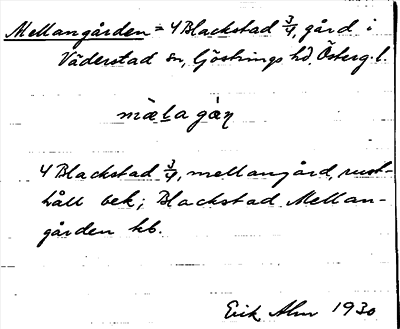 Mellangården = 4 Blackstad 3/4, gård i
Väderstad sn, Göstrings hd, Österg. l.
mæ̀lagán
4 Blackstad 3/4, mellangård, rust-
håll bek; Blackstad Mellan-
gården kb.
Erik Alm 1930